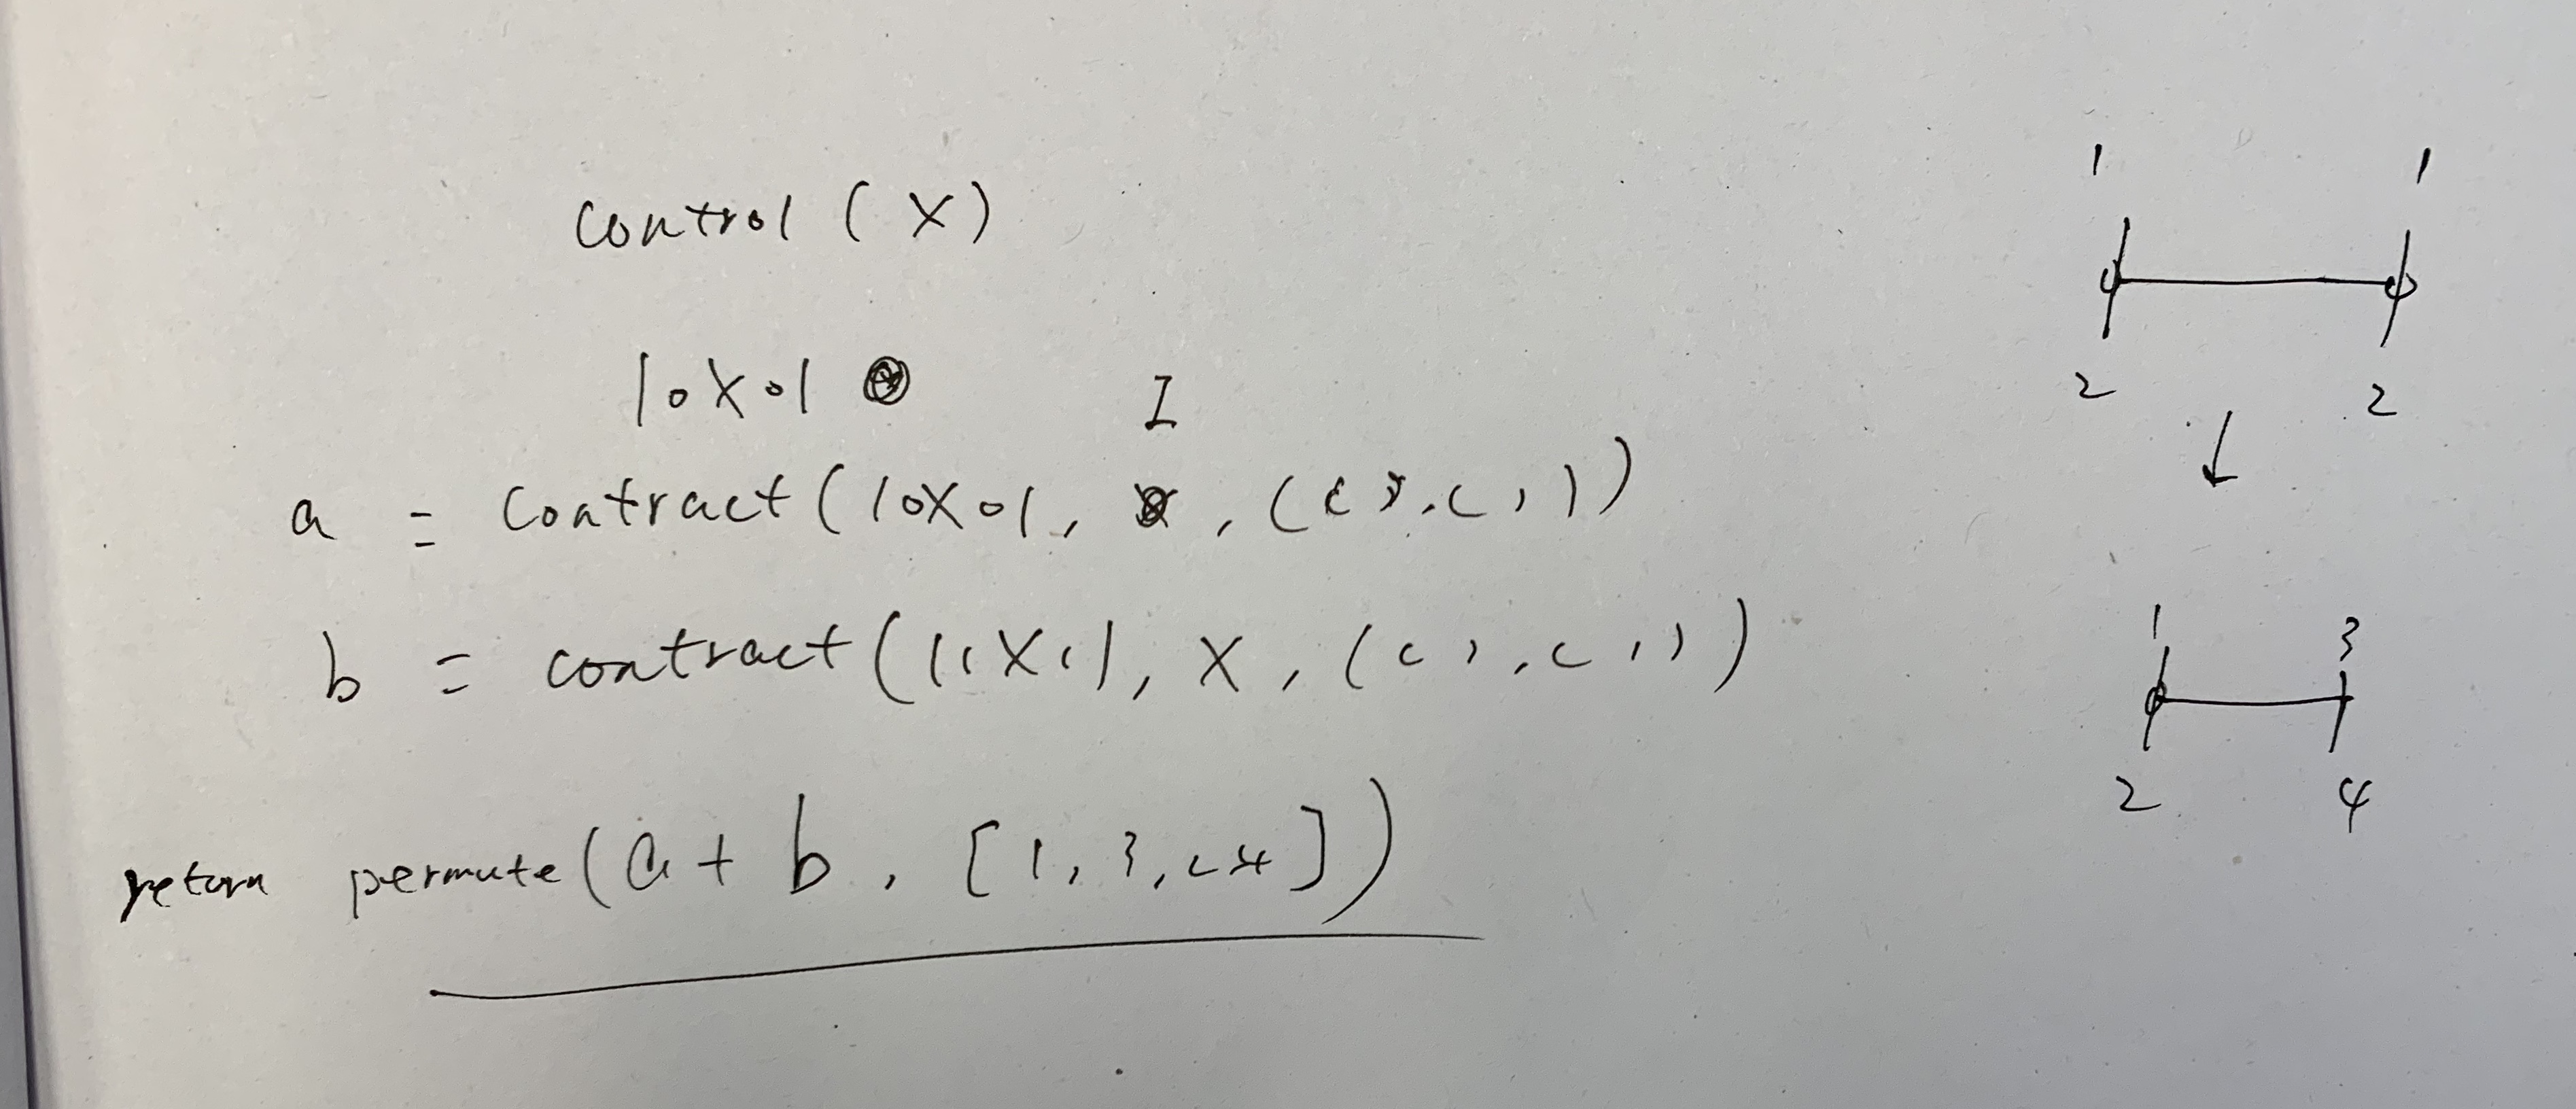 control (X)
|0X0|
I
a = contract(|0X0|, , (( ), ( , ))
b = contract(|1X1|, X, (( ), ( , ))
return permute(a + b, [1, 3, 2 4])
1 1
2 2
↓
1 3
2 4